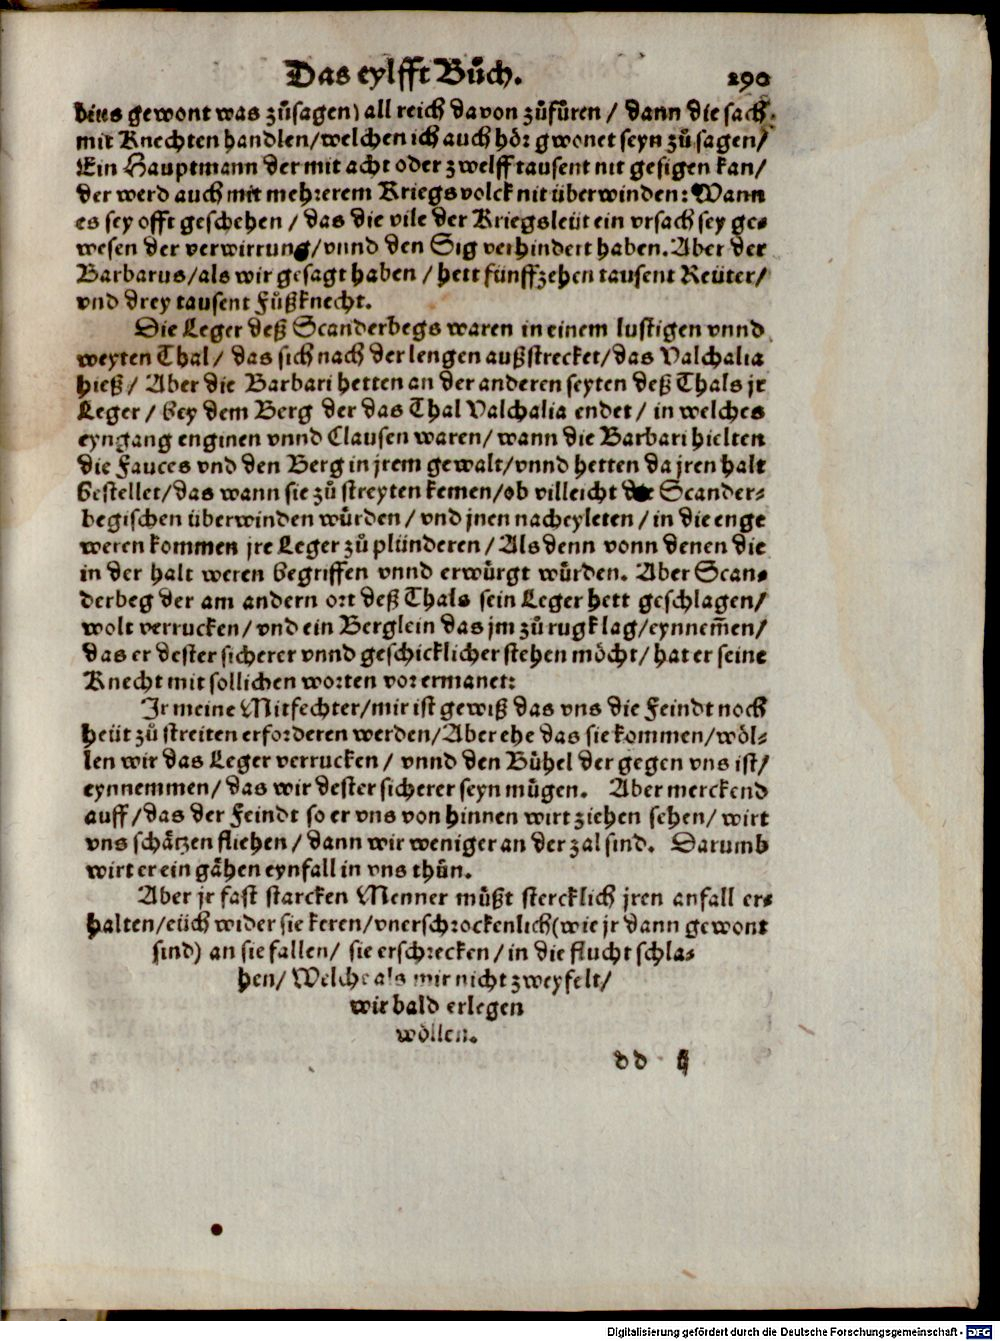 Das eylfft Bůch. 290
dius gewont was zůsagen) all reich davon zůfüren / dann die sach
mit Knechten handlen/welchen ich auch hör gwonet seyn zů sagen/
Ein Hauptmann der mit acht oder zwelff tausent nit gesigen kan/
der werd auch mit mehrerem Kriegsvolck nit überwinden: Wann
es sey offt geschehen / das die vile der Kriegsleüt ein vrsach sey ge-
wesen der verwirrung/vnnd den Sig verhindert haben. Aber der
Barbarus/als wir gesagt haben / hett fünffzehen tausent Reüter/
vnd drey tausent Fůßknecht.
Die Leger deß Scanderbegs waren in einem lustigen vnnd
weyten Thal/ das sich nach der lengen außstrecket/das Valchalia
hieß/ Aber die Barbari hetten an der anderen seyten deß Thals jr
Leger / bey dem Berg der das Thal Valchalia endet/ in welches
eyngang enginen vnnd Clausen waren/ wann die Barbari hielten
die Fauces vnd den Berg in jrem gewalt/vnnd hetten da jren halt
bestellet/das wann sie zů streyten kemen/ob villeicht die Scander-
begischen überwinden würden / vnd jnen nacheyleten / in die enge
weren kommen jre Leger zů plünderen / Als denn vonn denen die
in der halt weren begriffen vnnd erwürgt würden. Aber Scan-
derbeg der am andern ort deß Thals sein Leger hett geschlagen/
wolt verrucken/ vnd ein Berglein das jm zů rugk lag/eynnem̃en/
das er dester sicherer vnnd geschicklicher stehen möcht/ hat er seine
Knecht mit sollichen worten vor ermanet:
Ir meine Mitfechter/mir ist gewiß das vns die Feindt noch
heüt zů streiten erforderen werden/Aber ehe das sie kommen/wöl-
len wir das Leger verrucken / vnnd den Bühel der gegen vns ist/
eynnemmen/ das wir dester sicherer seyn mügen. Aber merckend
auff /das der Feindt so er vns von hinnen wirt ziehen sehen/ wirt
vns schätzen fliehen / dann wir weniger an der zal sind. Darumb
wirt er ein gähen eynfall in vns thůn.
Aber jr fast starcken Menner müßt stercklich jren anfall er-
halten/eüch wider sie keren/vnerschrockenlich (wie jr dann gewont
sind) an sie fallen/ sie erschrecken/ in die flucht schla-
hen/ Welche als mir nicht zweyfelt/
wir bald erlegen
wöllen.
dd ij
Digitalisierung gefördert durch die Deutsche Forschungsgemeinschaft - DFG